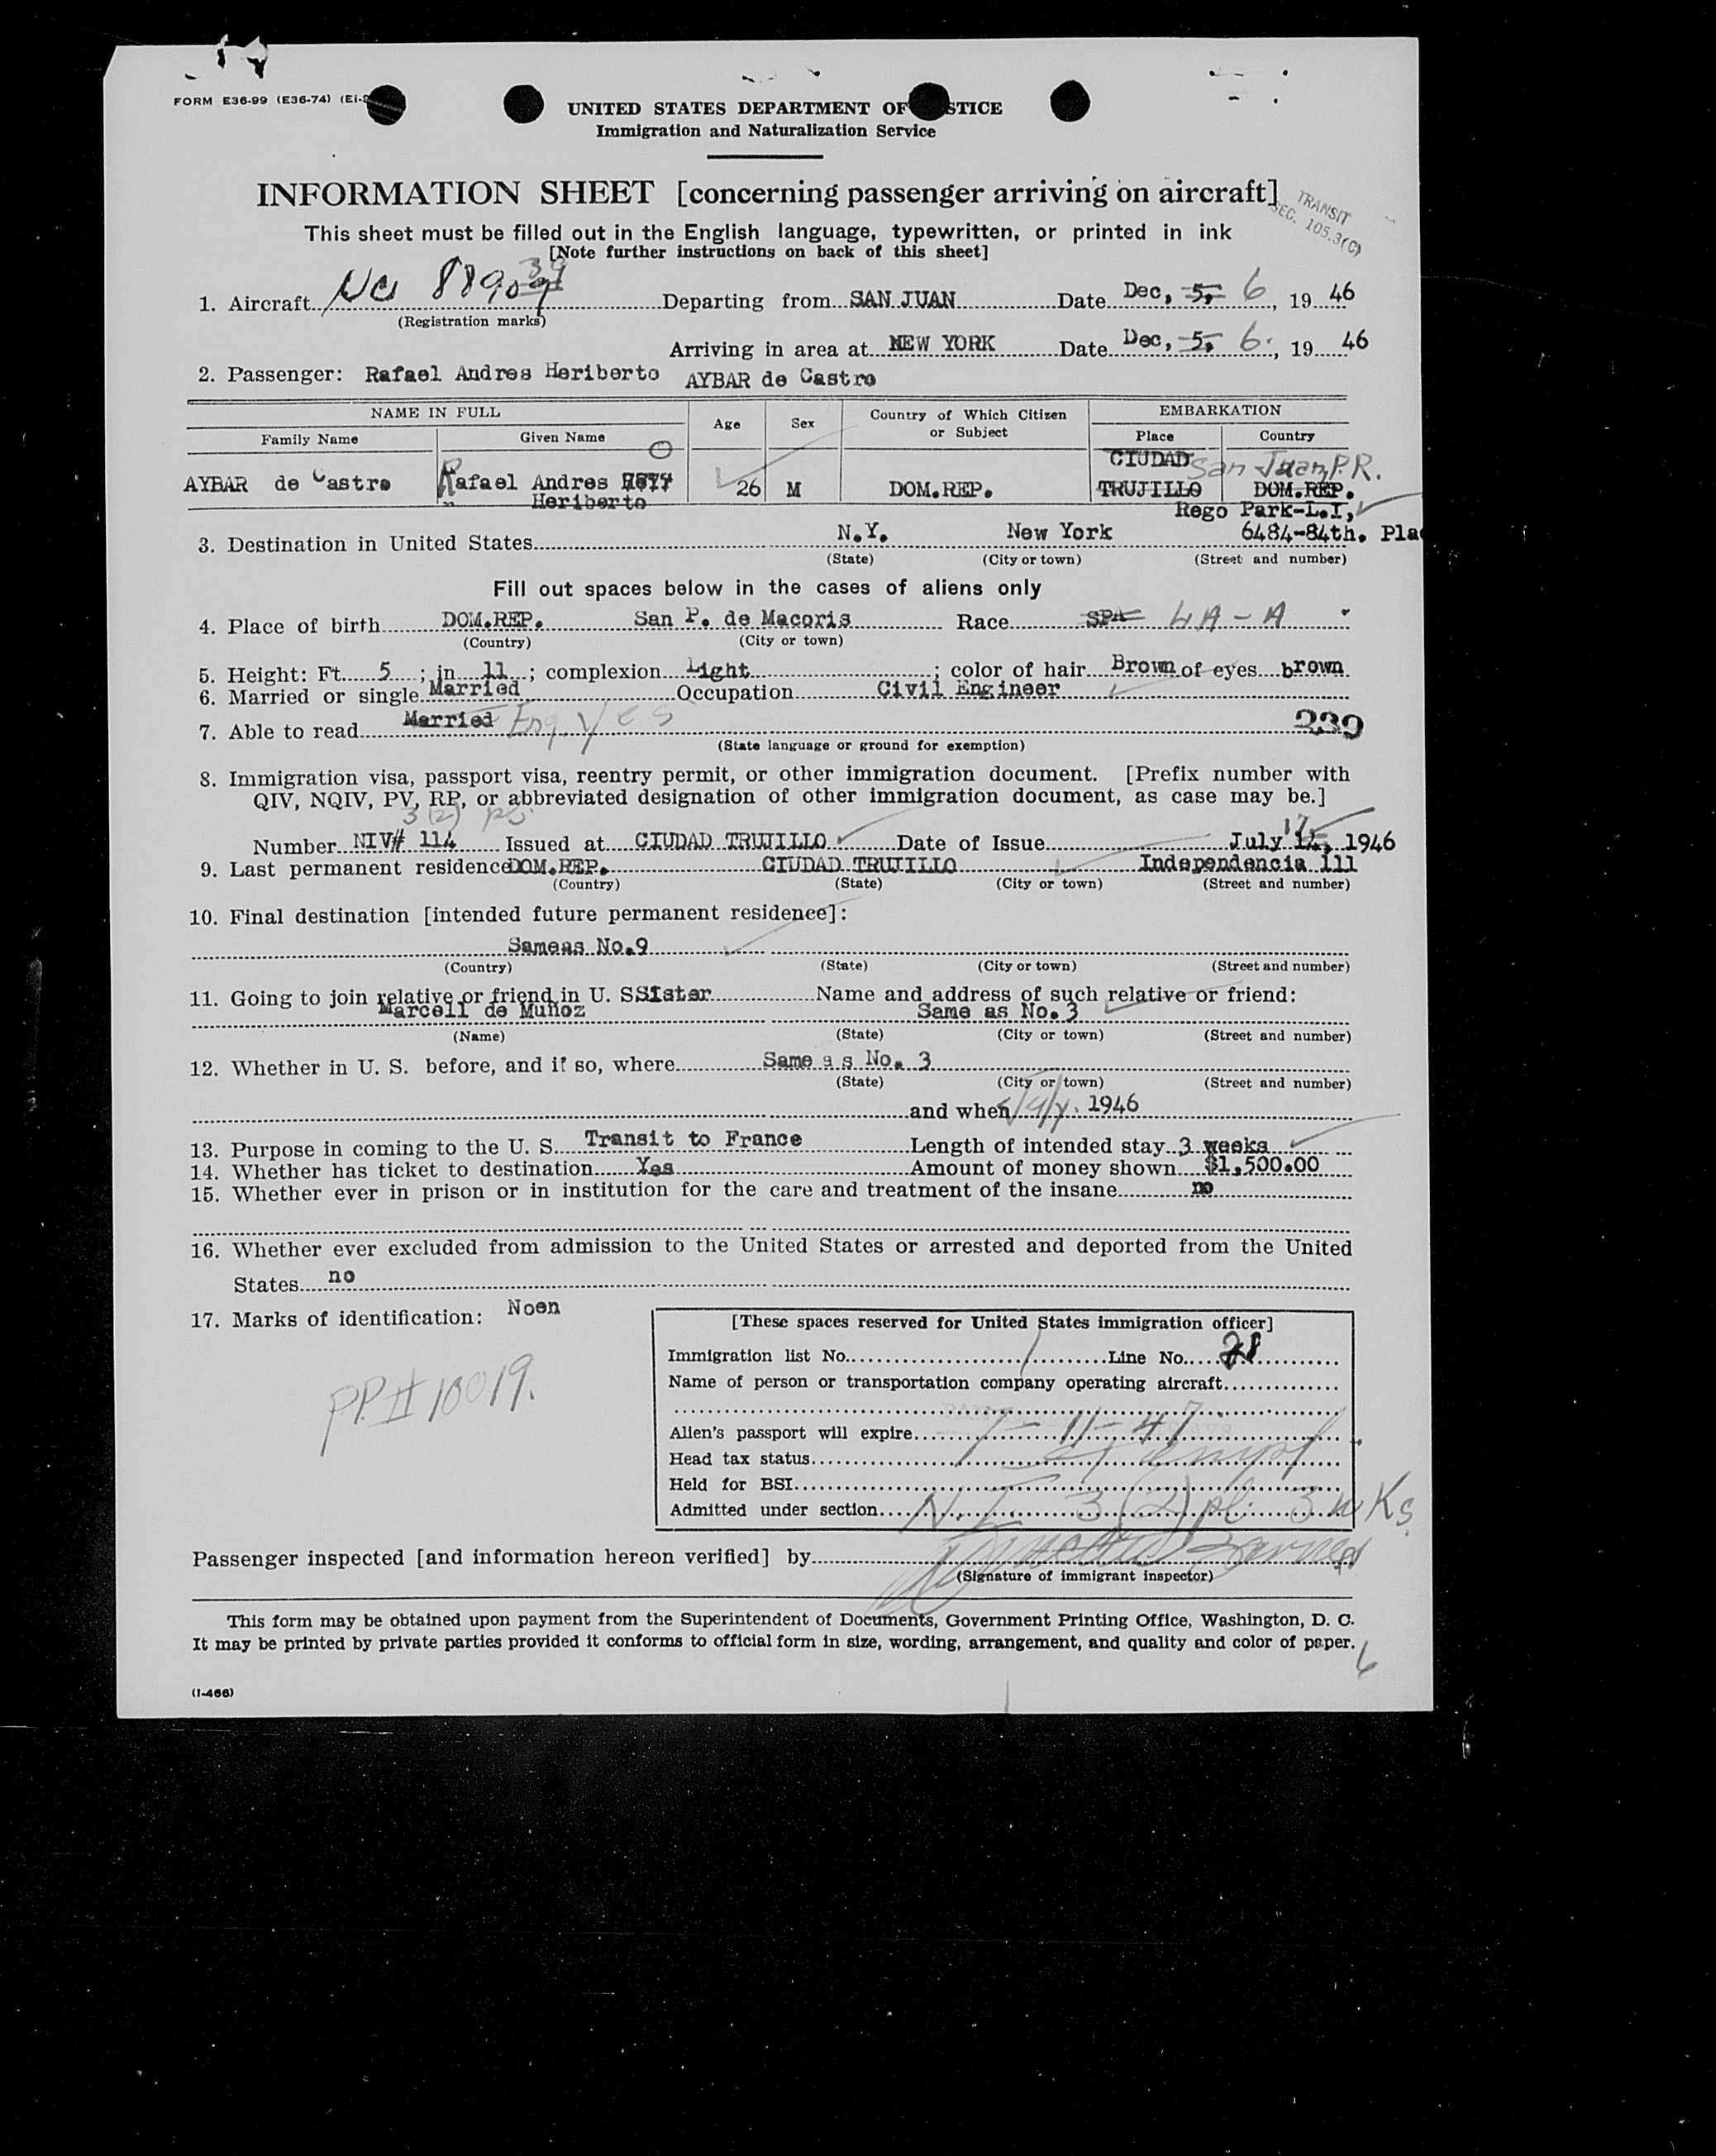 FORM E36-99 (E36-74) (Ei-
UNITED STATES DEPARTMENT OF STICE
Immigration and Naturalization Service
INFORMATION SHEET [concerning passenger arriving on aircraft]
TRANSIT
SEC. 105.3(C)
This sheet must be filled out in the English language, typewritten, or printed in ink
[Note further instructions on back of this sheet]
1. Aircraft Departing from SAN JUAN Date Dec, 5, 6, 19 46
(Registration marks)
Arriving in area at NEW YORK Date Dec, 5, 6., 19 46
2. Passenger: Rafael Andres Heriberto AYBAR de Castro
NAME IN FULL Age Sex Country of Which Citizen or Subject EMBARKATION
Family Name Given Name Place Country
CIUDAD San Juan, P.R.
AYBAR de Castro Rafael Andres 26 M DOM.REP. TRUJILLO DOM.REP.
Heriberto
Rego Park-L.I,
3. Destination in United States N.Y. New York 6484-84th. Pla
(State) (City or town) (Street and number)
Fill out spaces below in the cases of aliens only
4. Place of birth DOM.REP. San P. de Macoris Race SPA
(Country) (City or town)
5. Height: Ft. 5 ; in 11 ; complexion Light ; color of hair Brown of eyes brown
6. Married or single Married Occupation Civil Engineer
7. Able to read Married Eng. Yes 239
(State language or ground for exemption)
8. Immigration visa, passport visa, reentry permit, or other immigration document. [Prefix number with
QIV, NQIV, PV, RP, or abbreviated designation of other immigration document, as case may be.]
3(2)
Number NIV# 114 Issued at CIUDAD TRUJILLO Date of Issue July 1946
9. Last permanent residence DOM.REP. CIUDAD TRUJILLO Independencia 111
(Country) (State) (City or town) (Street and number)
10. Final destination [intended future permanent residence]:
Sameas No.9
(Country) (State) (City or town) (Street and number)
11. Going to join relative or friend in U. S. SIster Name and address of such relative or friend:
Marcell de Muñoz Same as No. 3
(Name) (State) (City or town) (Street and number)
12. Whether in U. S. before, and if so, where Same a s No. 3
(State) (City or town) (Street and number)
and when 1946
13. Purpose in coming to the U. S. Transit to France Length of intended stay 3 weeks
14. Whether has ticket to destination Yes Amount of money shown $1,500.00
15. Whether ever in prison or in institution for the care and treatment of the insane no
16. Whether ever excluded from admission to the United States or arrested and deported from the United
States no
17. Marks of identification: Noen
PP.# 10019.
[These spaces reserved for United States immigration officer]
Immigration list No. 1 Line No. 28
Name of person or transportation company operating aircraft
Alien's passport will expire 7-11-47
Head tax status Exempt
Held for BSI
Admitted under section N.I. 3(2) pl. 3 wks.
Passenger inspected [and information hereon verified] by
(Signature of immigrant inspector)
This form may be obtained upon payment from the Superintendent of Documents, Government Printing Office, Washington, D. C.
It may be printed by private parties provided it conforms to official form in size, wording, arrangement, and quality and color of paper.
6
(I-466)